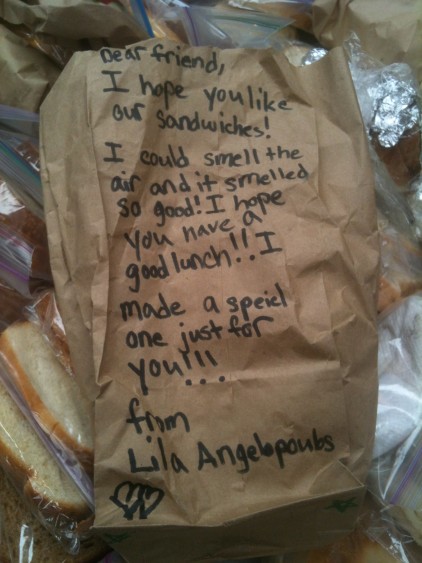 Dear friend,
I hope you like
our sandwiches!
I could smell the
air and it smelled
so good! I hope
you have a
good lunch!! I
made a speicl
one just for
you!!!
from
Lila Angelopoubs